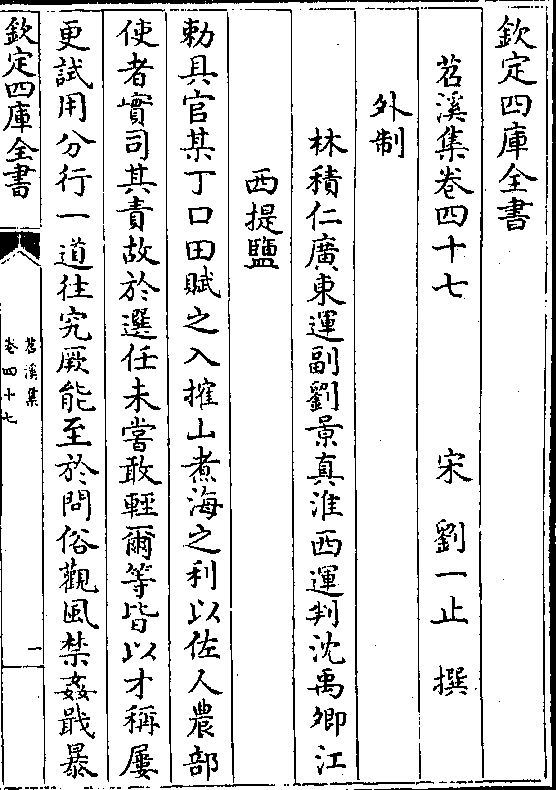 欽定四庫全書
苕溪集卷四十七　宋　劉一止　撰
外制
林積仁廣東運副劉景真淮西運判沈禹卿江
西提鹽
勅具官某丁口田賦之入搉山煮海之利以佐人農部
使者實司其責故於選任未嘗敢輕爾等皆以才稱屢
更試用分行一道往究厥能至於問俗觀風禁姦戢暴
欽定四庫全書
苕溪集
卷四十七
一